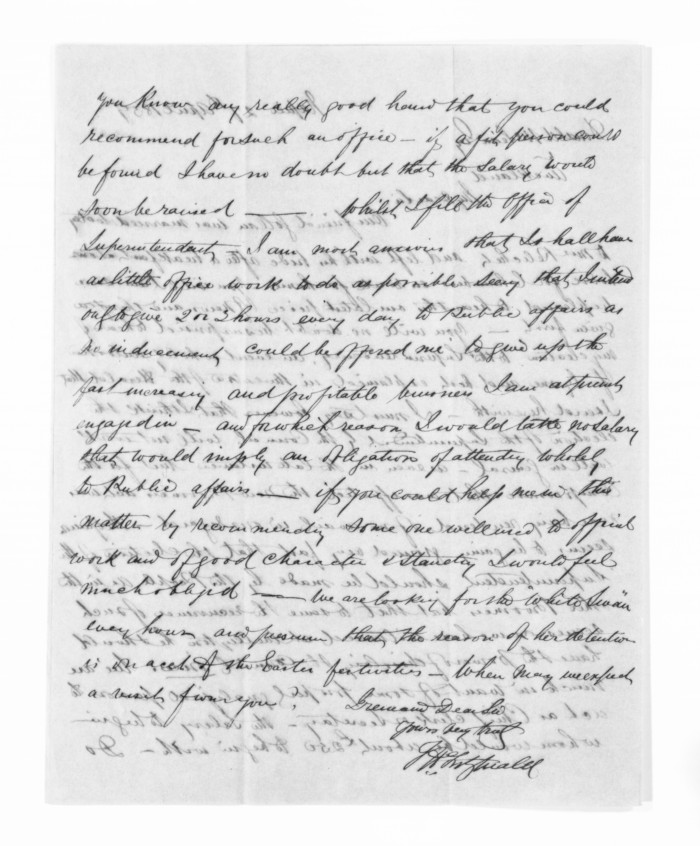 you Know any really good hand that you could
recommend for such an office — if a fit person could
be found I have no doubt but that the Salary would
soon be raised — Whilst I fill the Office of
Superintendent, I am most anxious that I shall have
as little office work to do as possible seeing that I intend
only to give 2 or 3 hours every day to Public affairs as
no inducement could be offered me to give up the
fast increasing and profitable business I am at present
engaged in — and for which reason I would take no Salary
that would imply an Obligation of attending wholely
to Public affairs — if you could help me in this
matter by recommending some one well used to official
work and of good character & standing I would feel
much obliged — We are looking for the "White Swan"
every hour and presume that the reason of her detention
is on acct of the Easter festivities — When may we expect
a visit from you?
I remain Dear Sir
Yours very truly
FitzGerald